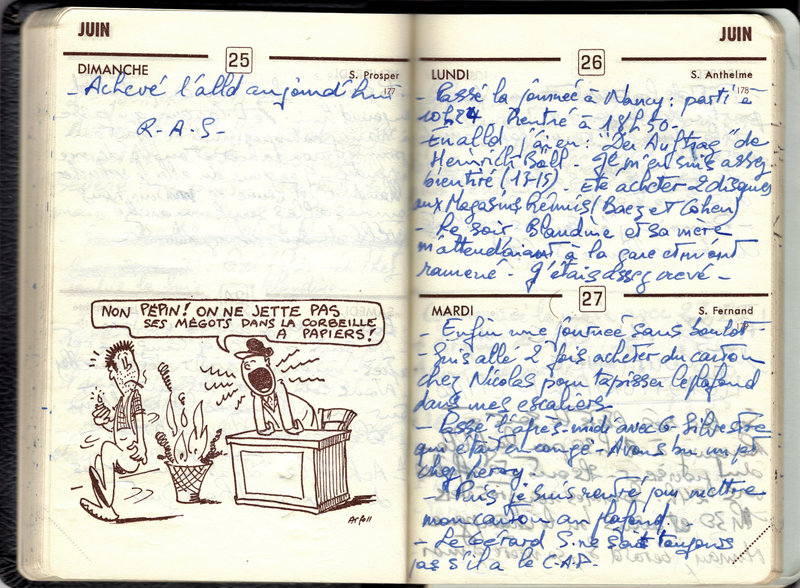 JUIN
25
DIMANCHE
S. Prosper
177
- Achevé l'alld aujourd'hui
R-A-S-
NON PÉPIN! ON NE JETTE PAS
SES MÉGOTS DANS LA CORBEILLE
A PAPIERS!
JUIN
26
LUNDI
S. Anthelme
178
- Passé la journée à Nancy: parti à
10h24. Rentré à 18h50-
En alld j'ai eu: "Der Auftrag" de
Heinrich Böll. Je m'en suis assez
bien tiré (13-15). Eté acheter 2 disques
aux Magasins Réunis (Baez et Cohen)
- Le soir Blandine et sa mère
m'attendaient à la gare et m'ont
ramené - J'étais assez crevé -
27
MARDI
S. Fernand
- Enfin une journée sans boulot -
- Suis allé 2 fois acheter du carton
chez Nicolas pour tapisser le plafond
dans mes escaliers.
- Passé l'après-midi avec G. Silvestre
qui était en congé - Avons bu un pot
chez
- Puis je suis rentré pour mettre
mon carton au plafond.
- Le Gérard S. ne sait toujours
pas s'il a le C.A.P.